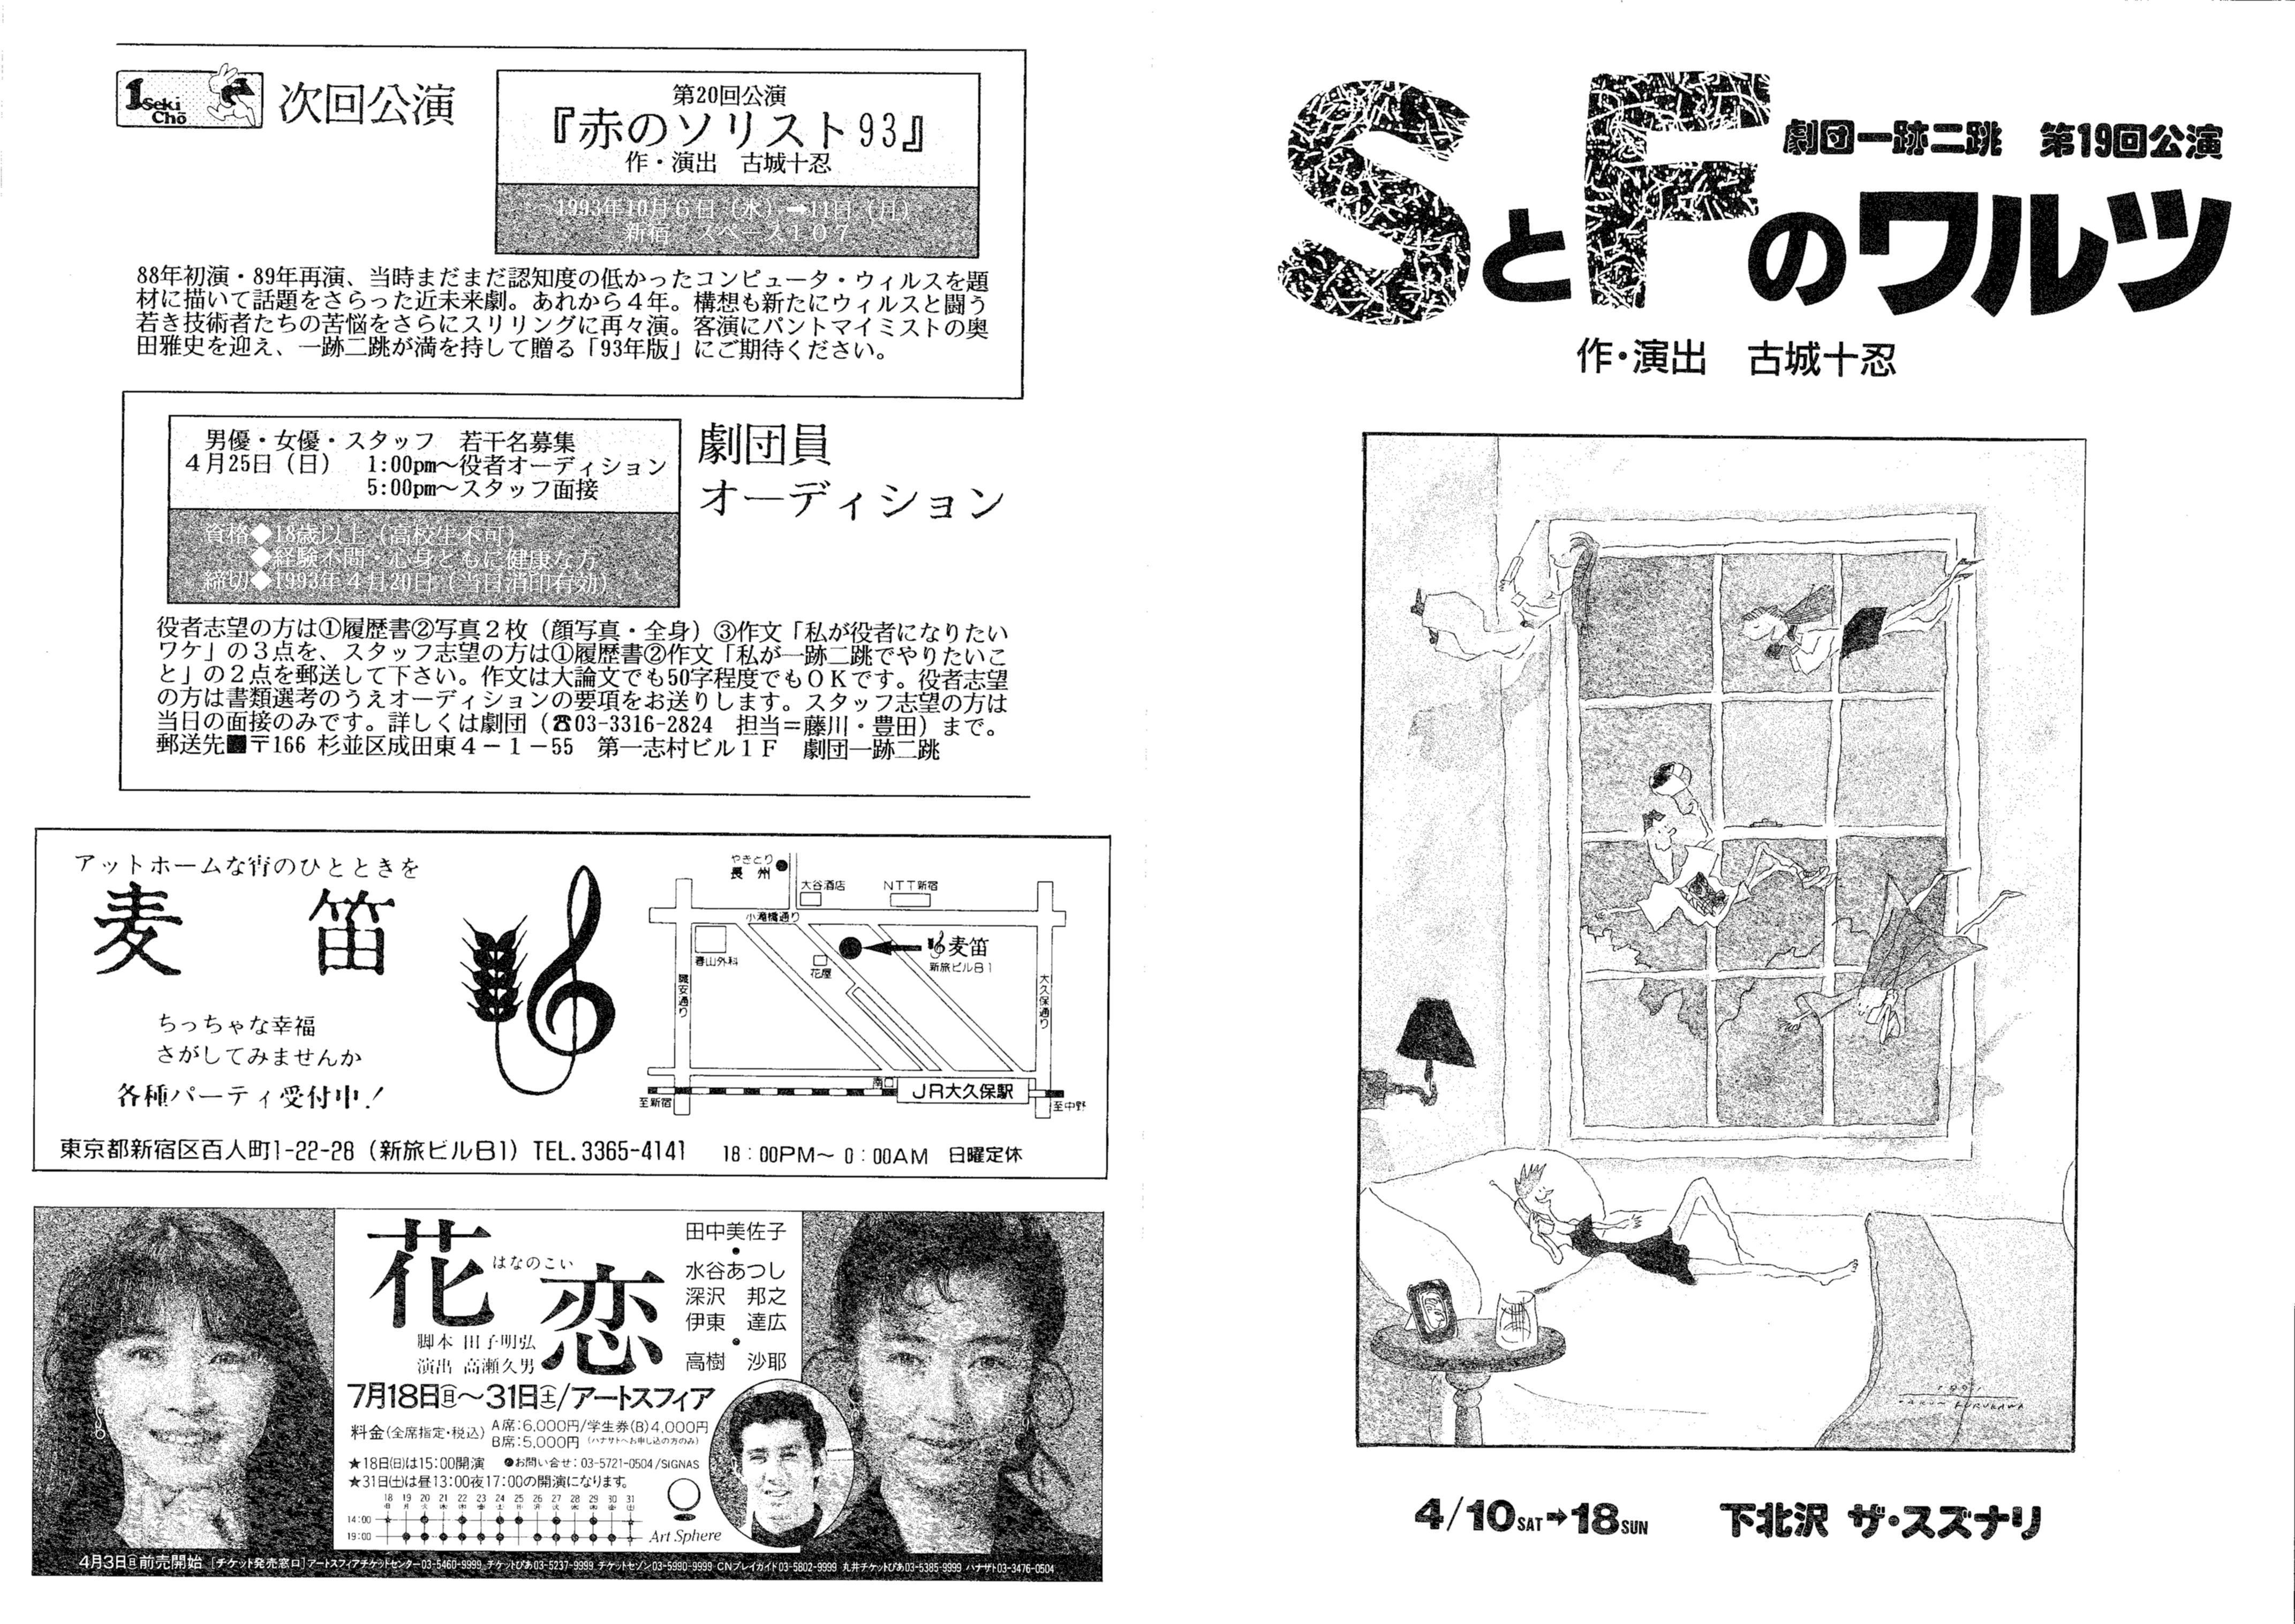 1Seki Chō
次回公演
第20回公演
『赤のソリスト93』
作・演出　古城十忍
1993年10月6日（水）➡11日（月）
新宿　スペース107
88年初演・89年再演、当時まだまだ認知度の低かったコンピュータ・ウィルスを題
材に描いて話題をさらった近未来劇。あれから４年。構想も新たにウィルスと闘う
若き技術者たちの苦悩をさらにスリリングに再々演。客演にパントマイミストの奥
田雅史を迎え、一跡二跳が満を持して贈る「93年版」にご期待ください。
男優・女優・スタッフ　若干名募集
４月25日（日）　1:00pm～役者オーディション
5:00pm～スタッフ面接
資格◆18歳以上（高校生不可）
◆経験不問・心身ともに健康な方
締切◆1993年４月20日（当日消印有効）
劇団員
オーディション
役者志望の方は①履歴書②写真２枚（顔写真・全身）③作文「私が役者になりたい
ワケ」の３点を、スタッフ志望の方は①履歴書②作文「私が一跡二跳でやりたいこ
と」の２点を郵送して下さい。作文は大論文でも50字程度でもＯＫです。役者志望
の方は書類選考のうえオーディションの要項をお送りします。スタッフ志望の方は
当日の面接のみです。詳しくは劇団（☎03-3316-2824　担当＝藤川・豊田）まで。
郵送先■〒166 杉並区成田東４－１－55　第一志村ビル１Ｆ　劇団一跡二跳
アットホームな宵のひとときを
麦笛
ちっちゃな幸福
さがしてみませんか
各種パーティ受付中！
やきとり
長州
大谷酒店
NTT新宿
小滝橋通り
春山外科
花屋
麦笛
新旅ビルB1
職安通り
大久保通り
南口
JR大久保駅
至新宿
至中野
東京都新宿区百人町1-22-28（新旅ビルB1）TEL.3365-4141　18：00PM～0：00AM　日曜定休
花恋
はなのこい
脚本 田子明弘
演出 高瀬久男
田中美佐子
・
水谷あつし
深沢　邦之
伊東　達広
・
高樹　沙耶
7月18日㊐～31日㊏/アートスフィア
料金(全席指定・税込) A席：6,000円/学生券(B)4,000円
B席：5,000円（ハナサトへお申し込の方のみ）
★18日(日)は15:00開演　●お問い合せ：03-5721-0504/SIGNAS
★31日(土)は昼13:00夜17:00の開演になります。
18 19 20 21 22 23 24 25 26 27 28 29 30 31
日 月 火 水 木 金 土 日 月 火 水 木 金 土
14:00
19:00
Art Sphere
4月3日㊏前売開始 [チケット発売窓口] アートスフィアチケットセンター03-5460-9999 チケットぴあ03-5237-9999 チケットセゾン03-5990-9999 CNプレイガイド03-5802-9999 丸井チケットぴあ03-5385-9999 ハナサト03-3476-0504
劇団一跡二跳　第19回公演
SとFのワルツ
作・演出　古城十忍
1991
TAKUM FURUKAWA
4/10SAT➔18SUN　下北沢 ザ・スズナリ